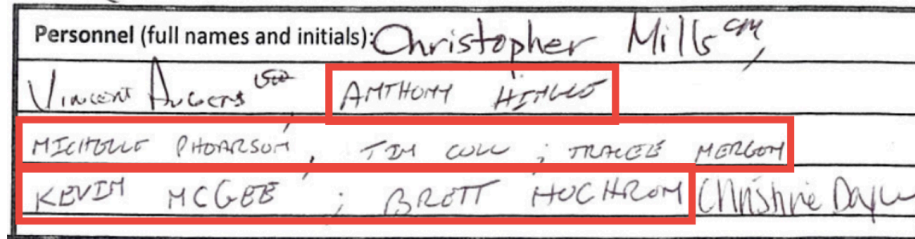 Personnel (full names and initials): Christopher Mills cm,
Vincent ANTHONY
MICHELLE PHOARSON, TIM COLL ; TRACEE
KEVIN MCGEE ; BRETT HOCHROM Christine